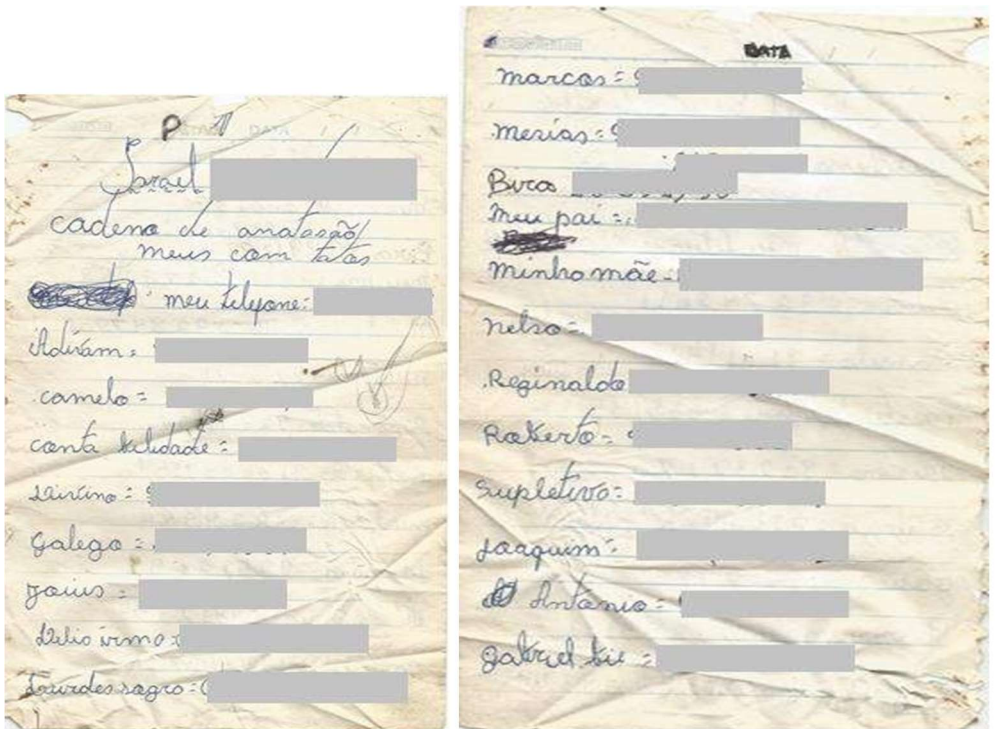 P
DATA / /
Israel
caderno de anatasão/
meus com tatos
meu telefone:
Adiram =
camelo =
conta bilidade =
Galego =
Jaius =
Délio irmo =
Lourdes sagro =
DATA / /
marcos =
mesias =
Bira
meu pai =
minha mãe =
nelso =
Reginaldo
Roberto =
Supletivo =
Joaquim =
Antonio =
gabriel bie =